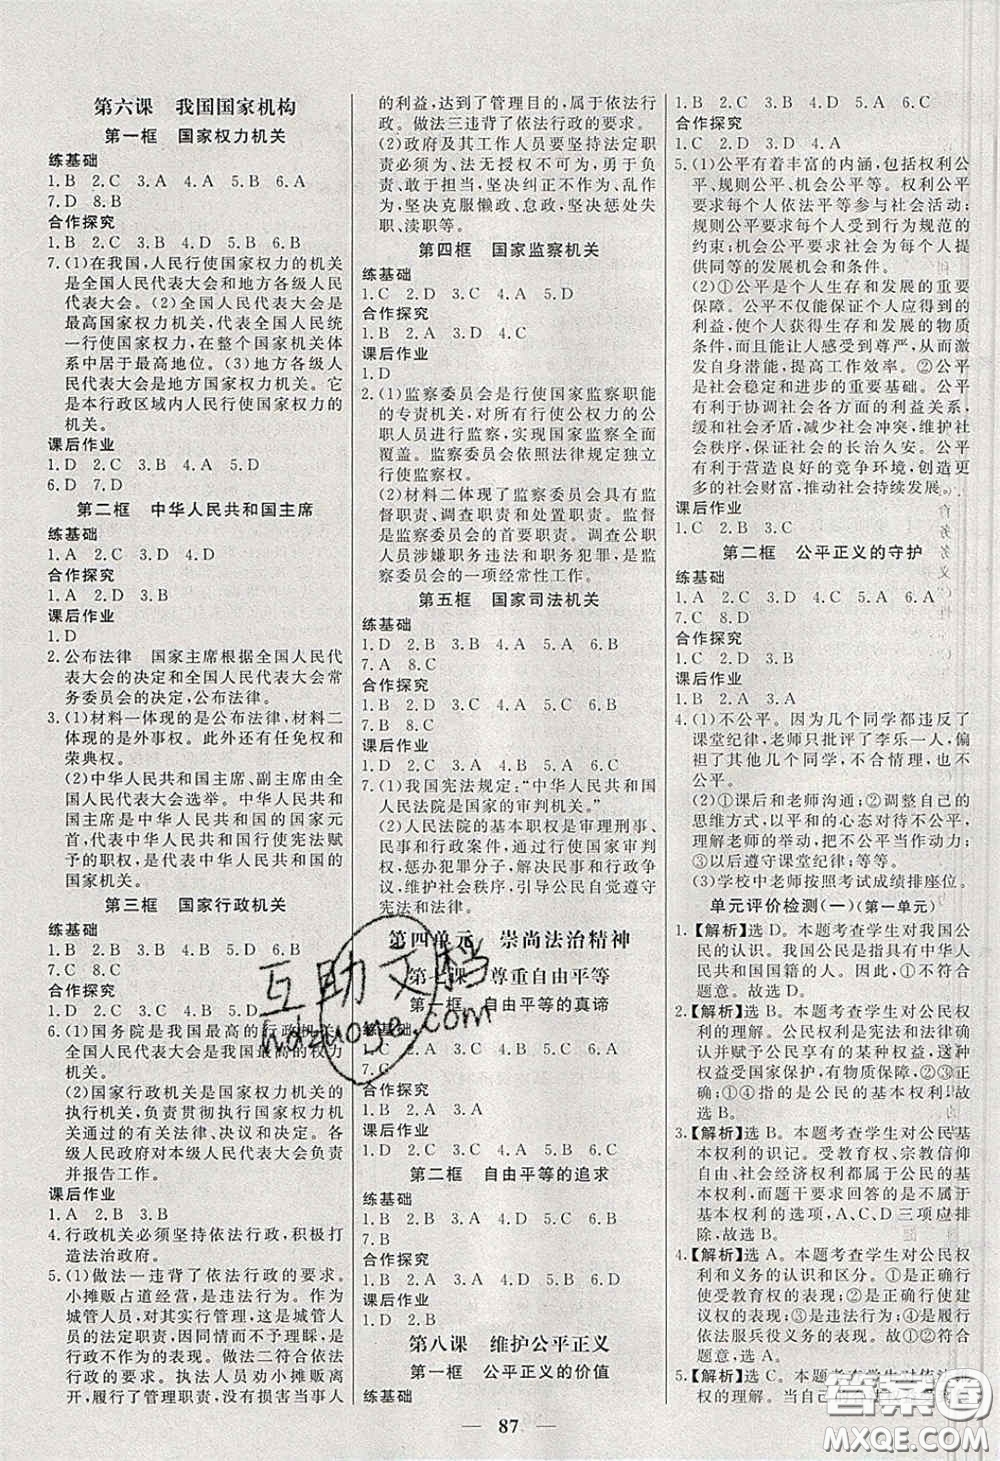 第六课　我国国家机构
第一框　国家权力机关
练基础
1.B　2.C　3.A　4.A　5.B　6.A
7.D　8.B
合作探究
1.B　2.C　3.B　4.A　5.B　6.D
7.(1)在我国,人民行使国家权力的机关
是全国人民代表大会和地方各级人民
代表大会。(2)全国人民代表大会是
最高国家权力机关,代表全国人民统
一行使国家权力,在整个国家机关体
系中居于最高地位。(3)地方各级人
民代表大会是地方国家权力机关。它
是本行政区域内人民行使国家权力的
机关。
课后作业
1.D　2.C　3.B　4.A　5.B
6.D　7.D
第二框　中华人民共和国主席
练基础
1.A　2.C　3.D　4.A　5.D
合作探究
1.A　2.D　3.B
课后作业
1.D
2.公布法律　国家主席根据全国人民代
表大会的决定和全国人民代表大会常
务委员会的决定,公布法律。
3.(1)材料一体现的是公布法律,材料二
体现的是外事权。此外还有任免权和
荣典权。
(2)中华人民共和国主席、副主席由全
国人民代表大会选举。中华人民共和
国主席是中华人民共和国的国家元
首,代表中华人民共和国行使宪法赋
予的职权,是代表中华人民共和国的
国家机关。
第三框　国家行政机关
练基础
1.B　2.D　3.C　4.A　5.B　6.C
合作探究
1.D　2.D　3.C　4.A　5.D
6.(1)国务院是我国最高的行政机关,
全国人民代表大会是我国最高的权力
机关。
(2)国家行政机关是国家权力机关的
执行机关,负责贯彻执行国家权力机
关通过的有关法律、决议和决定。各
级人民政府对本级人民代表大会负责
并报告工作。
课后作业
1.A　2.B　3.B
4.行政机关必须坚持依法行政,积极打
造法治政府。
5.(1)做法一违背了依法行政的要求。
小摊贩占道经营,是违法行为。作为
城管人员,对其实行管理,这是城管人
员的法定职责,因同情而不管理,是不
作为的表现。做法二符合依法行
政的要求。执法人员劝小摊贩离
开,履行了管理职责,没有损害当事人
的利益,达到了管理目的,属于依法行
政。做法三违背了依法行政的要求。
(2)政府及其工作人员要坚持法定职
责必须为、法无授权不可为,勇于负
责、敢于担当,坚决纠正不作为、乱作
为,坚决克服懒政、怠政,坚决惩处失
职、渎职等。
第四框　国家监察机关
练基础
1.C　2.D　3.C　4.A　5.D
合作探究
1.B　2.D　3.D　4.C
课后作业
1.D
2.(1)监察委员会是行使国家监察职能
的专责机关,对所有行使公权力的公
职人员进行监察,实现国家监察全面
覆盖。监察委员会依照法律规定独立
行使监察权。
(2)材料二体现了监察委员会具有监
督职责、调查职责和处置职责。监督
是监察委员会的首要职责。调查公职
人员涉嫌职务违法和职务犯罪,是监
察委员会的一项经常性工作。
第五框　国家司法机关
练基础
1.D　2.B　3.B　4.D　5.A　6.B
7.A　8.C
合作探究
1.B　2.D　3.D　4.D　5.A　6.C
7.B　8.C
课后作业
1.D　2.C　3.D　4.A　5.A　6.B
7.(1)我国宪法规定:“中华人民共和国
人民法院是国家的审判机关。”
(2)人民法院的基本职权是审理刑事、
民事和行政案件,通过行使国家审判
权,惩办犯罪分子,解决民事和行政争
议,维护社会秩序,引导公民自觉遵守
宪法和法律。
第四单元　崇尚法治精神
第七课　尊重自由平等
第一框　自由平等的真谛
练基础
1.C　2.C　3.C　4.A　5.B　6.A
7.C
合作探究
1.B　2.A　3.A
课后作业
1.D　2.C　3.C　4.A　5.B　6.B
第二框　自由平等的追求
练基础
1.B　2.C　3.A　4.B　5.D　6.B
7.A
合作探究
1.B　2.D　3.C　4.A　5.D　6.A
课后作业
1.D　2.B
第八课　维护公平正义
第一框　公平正义的价值
练基础
1.B　2.C　3.B　4.A　5.A　6.C
合作探究
1.C　2.D　3.D　4.A
5.(1)公平有着丰富的内涵,包括权利公
平、规则公平、机会公平等。权利公平
要求每个人依法平等参与社会活动;
规则公平要求每个人受到同样规则的
约束;机会公平要求社会为每个人提
供同等的发展机会。
(2)①公平是个人生存和发展的重要
保障。公平不仅能保证个人应得到的
利益,使个人获得生存和发展的物质
条件,而且能让人感受到尊严,从而激
发自身潜能,提高工作效率。②公平
是社会稳定和进步的重要基础。公平
有利于协调社会各方面的利益关系,
缓和社会矛盾,减少社会冲突,维护社
会秩序,保证社会的长治久安。公平
有利于营造良好的竞争环境,创造更
多的社会财富,推动社会持续发展。
课后作业
1.C　2.B　3.C
第二框　公平正义的守护
练基础
1.A　2.C　3.D　4.D　5.B　6.B
7.C　8.D
合作探究
1.C　2.D　3.D
课后作业
1.B　2.A　3.A
4.(1)不公平。因为几个同学都违反了
课堂纪律,老师只批评了李乐一人,偏
袒了其他的几个同学,对李乐来说是
不公平。
(2)①课后和老师沟通;②调整自己的
思维方式,以平和的心态对待不公平,
理解老师的举动,把不公平当作动力;
③以后遵守课堂纪律;等等。
(3)学校中老师按照考试成绩排座位。
单元评价检测(一)(第一单元)
1.【解析】选 D。本题考查学生对公民
的认识。我国公民是指具有中华人民
共和国国籍的人。因此,A、B、C 不符合
题意。故选 D。
2.【解析】选 B。本题考查学生对公民权
利的理解。公民权利是宪法和法律确
认并赋予公民享有的某种权益,这种权益
受国家保护,有物质保障,②③
正确;①④指的是公民的基本权利,故
选 B。
3.【解析】选 B。本题考查学生对公民基
本权利的识记。受教育权、宗教信仰
自由、社会经济权利都属于公民的基
本权利,而题干要求回答的是不属于
基本权利的选项,A、C、D 三项应排
除。故选 B。
4.【解析】选 A。本题考查学生对公民权
利和义务的认识和区分。
87
互助文档
hdzuoye.com
答案圈
MXQE.COM